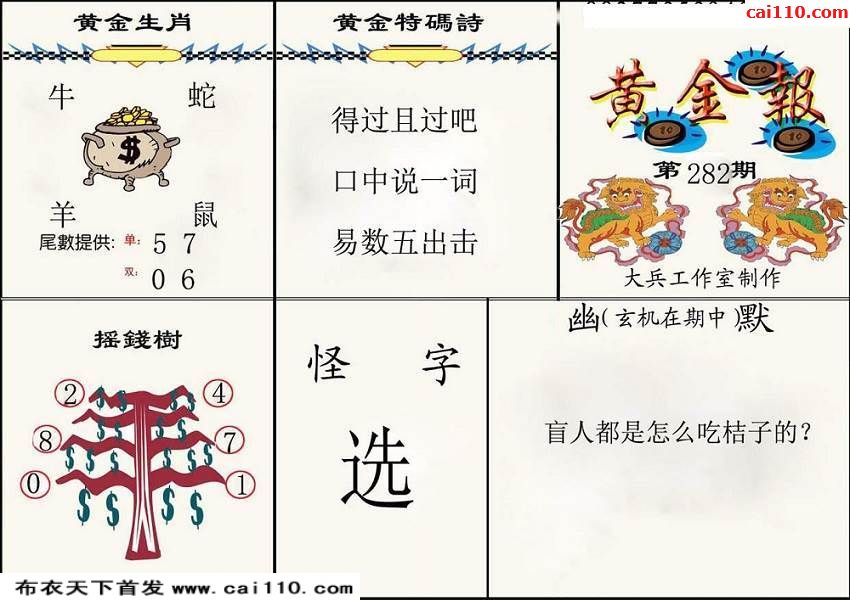 黄金生肖
牛 蛇
羊 鼠
尾數提供: 单: 5 7
双: 0 6
黄金特碼詩
得过且过吧
口中说一词
易数五出击
cai110.com
黄金報
第282期
大兵工作室制作
摇錢樹
2 4
8 7
0 1
怪 字
选
幽(玄机在期中)默
盲人都是怎么吃桔子的？
布衣天下首发 www.cai110.com